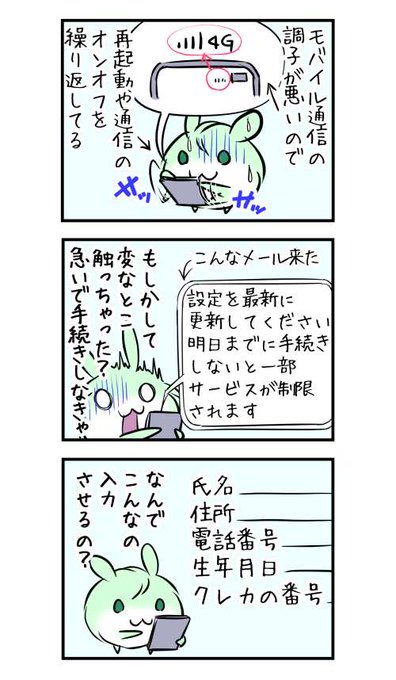 モバイル通信の
調子が悪いので
4G
再起動や通信の
オンオフを
繰り返してる
ササッ
ササッ
こんなメール来た
設定を最新に
更新してください
明日までに手続き
しないと一部
サービスが制限
されます
もしかして
変なとこ
触っちゃった?
急いで手続きしなきゃ
氏名
住所
電話番号
生年月日
クレカの番号
なんで
こんなの
入力
させるの?